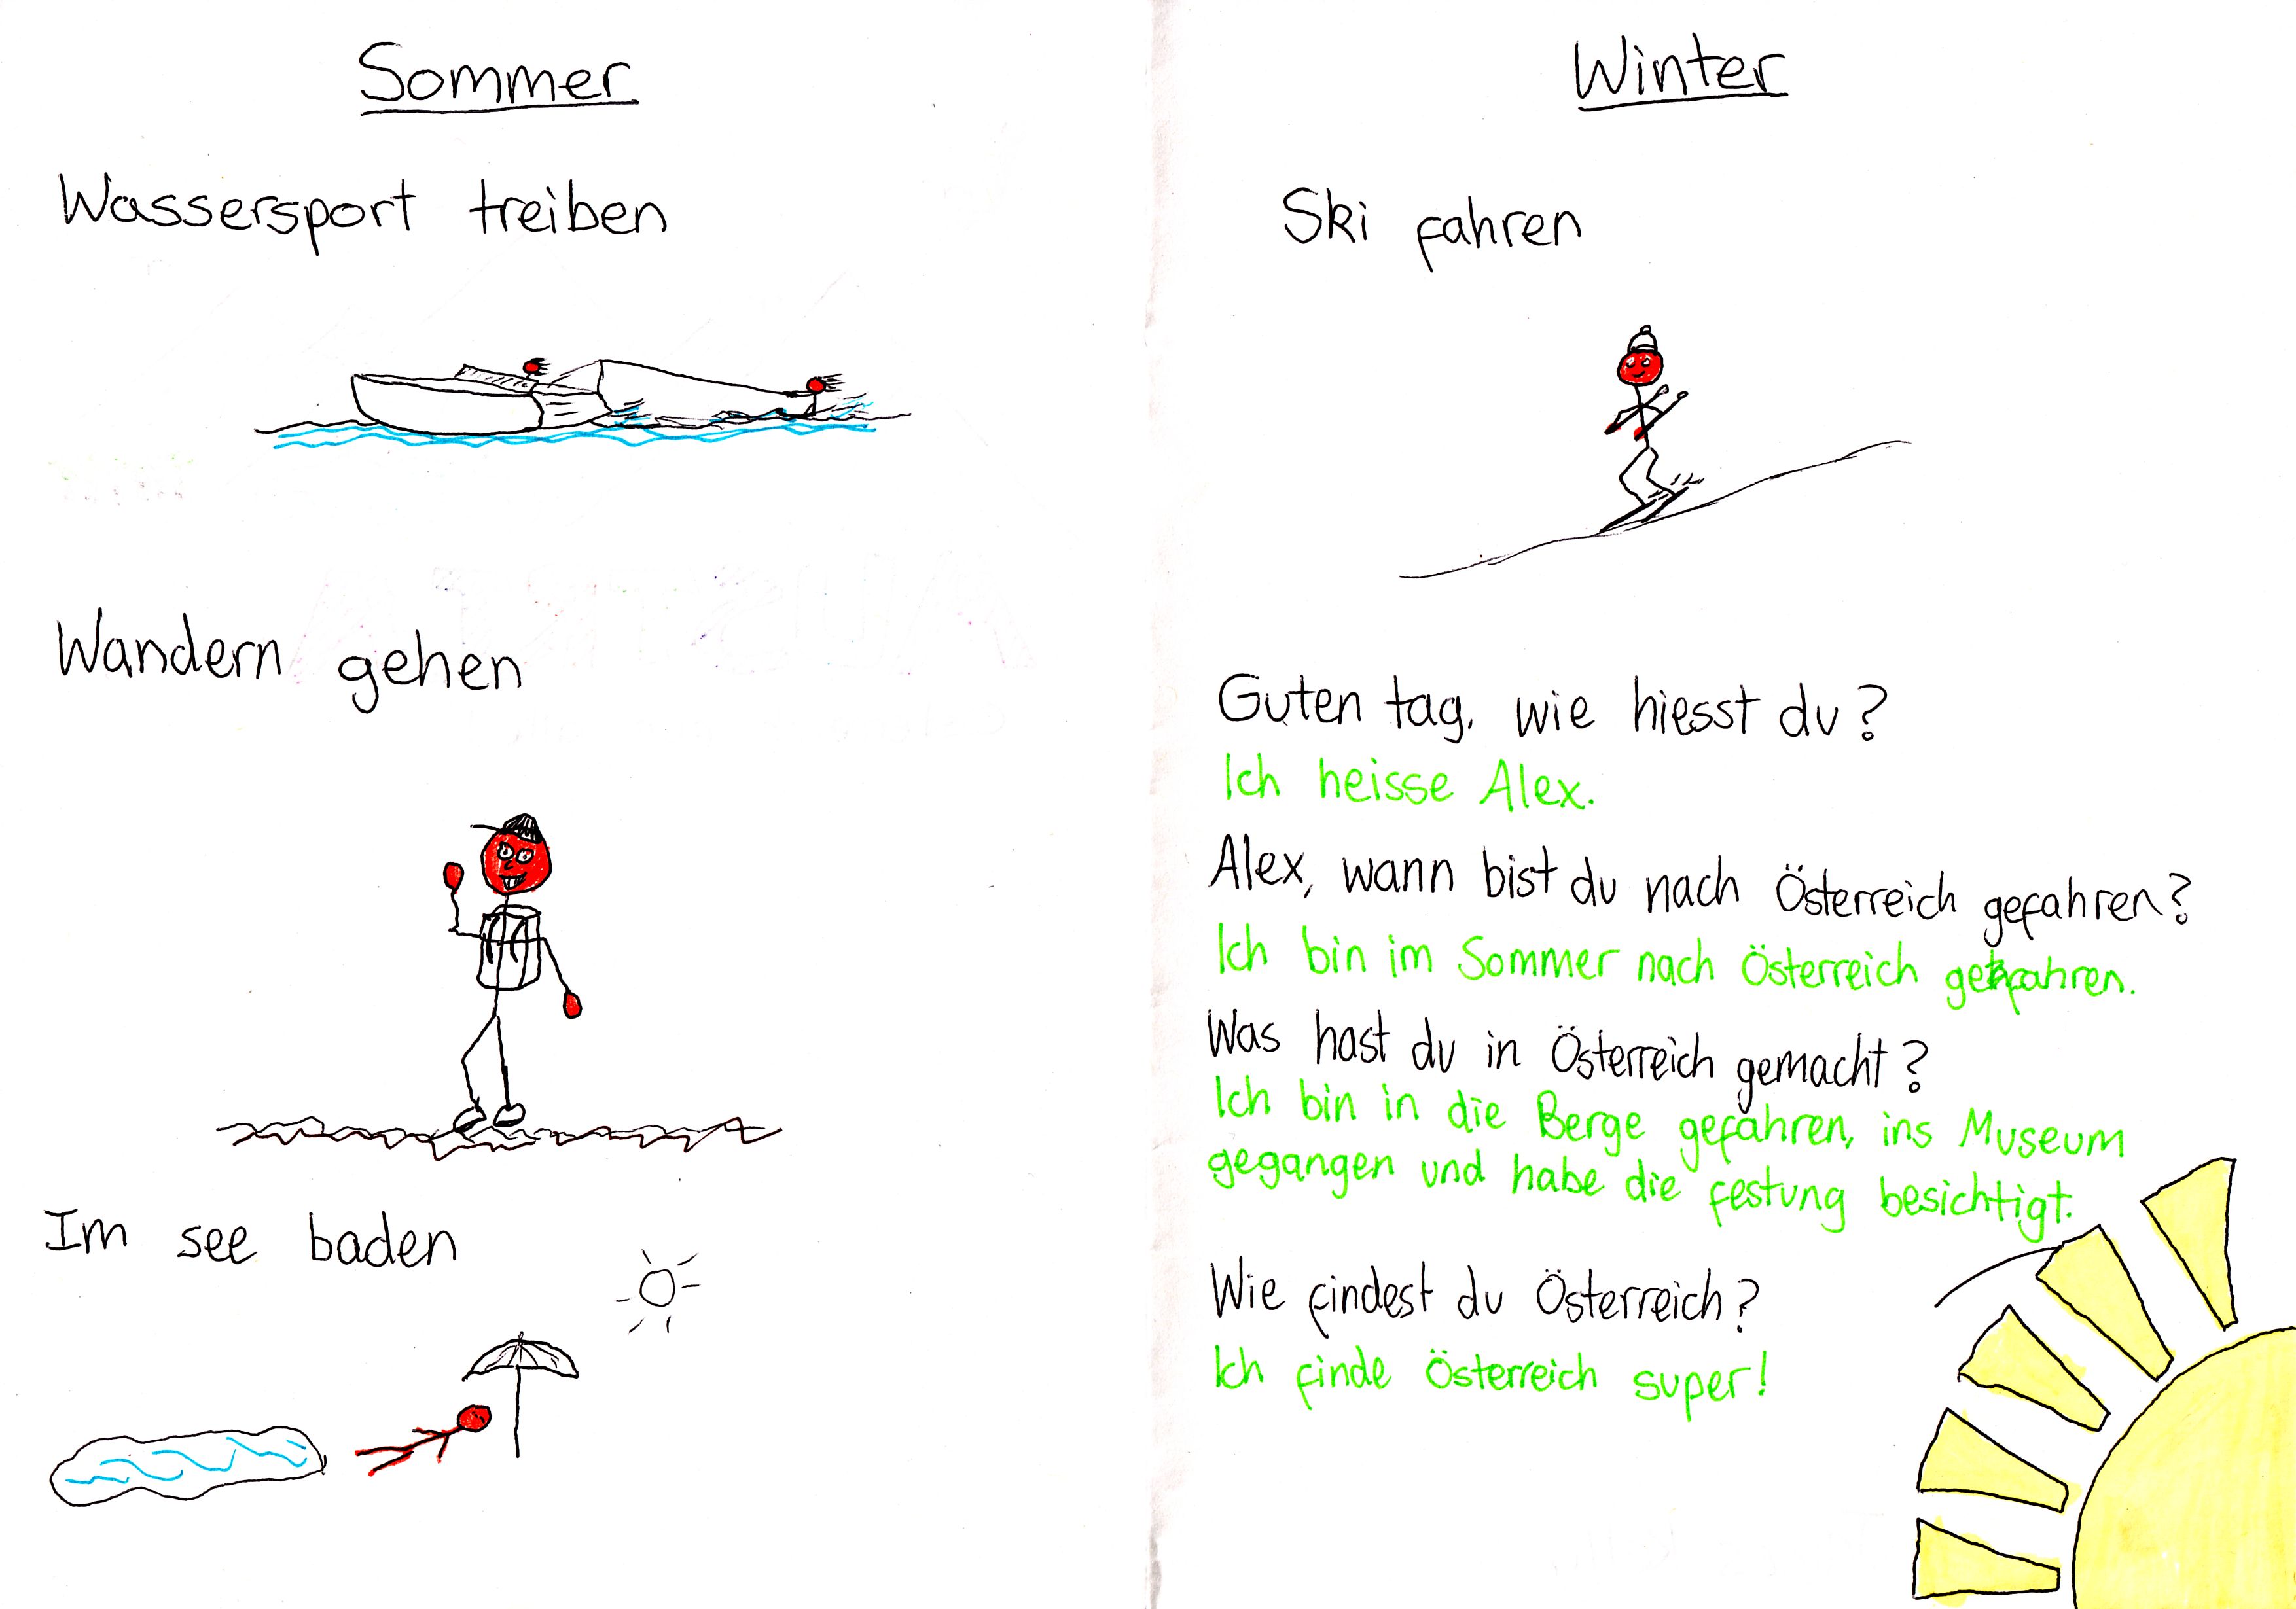 Sommer
Wassersport treiben
Wandern gehen
Im see baden
Winter
Ski fahren
Guten tag, wie hiesst du?
Ich heisse Alex.
Alex, wann bist du nach Österreich gefahren?
Ich bin im Sommer nach Österreich gefahren.
Was hast du in Österreich gemacht?
Ich bin in die Berge gefahren, ins Museum
gegangen und habe die festung besichtigt.
Wie findest du Österreich?
Ich finde Österreich super!